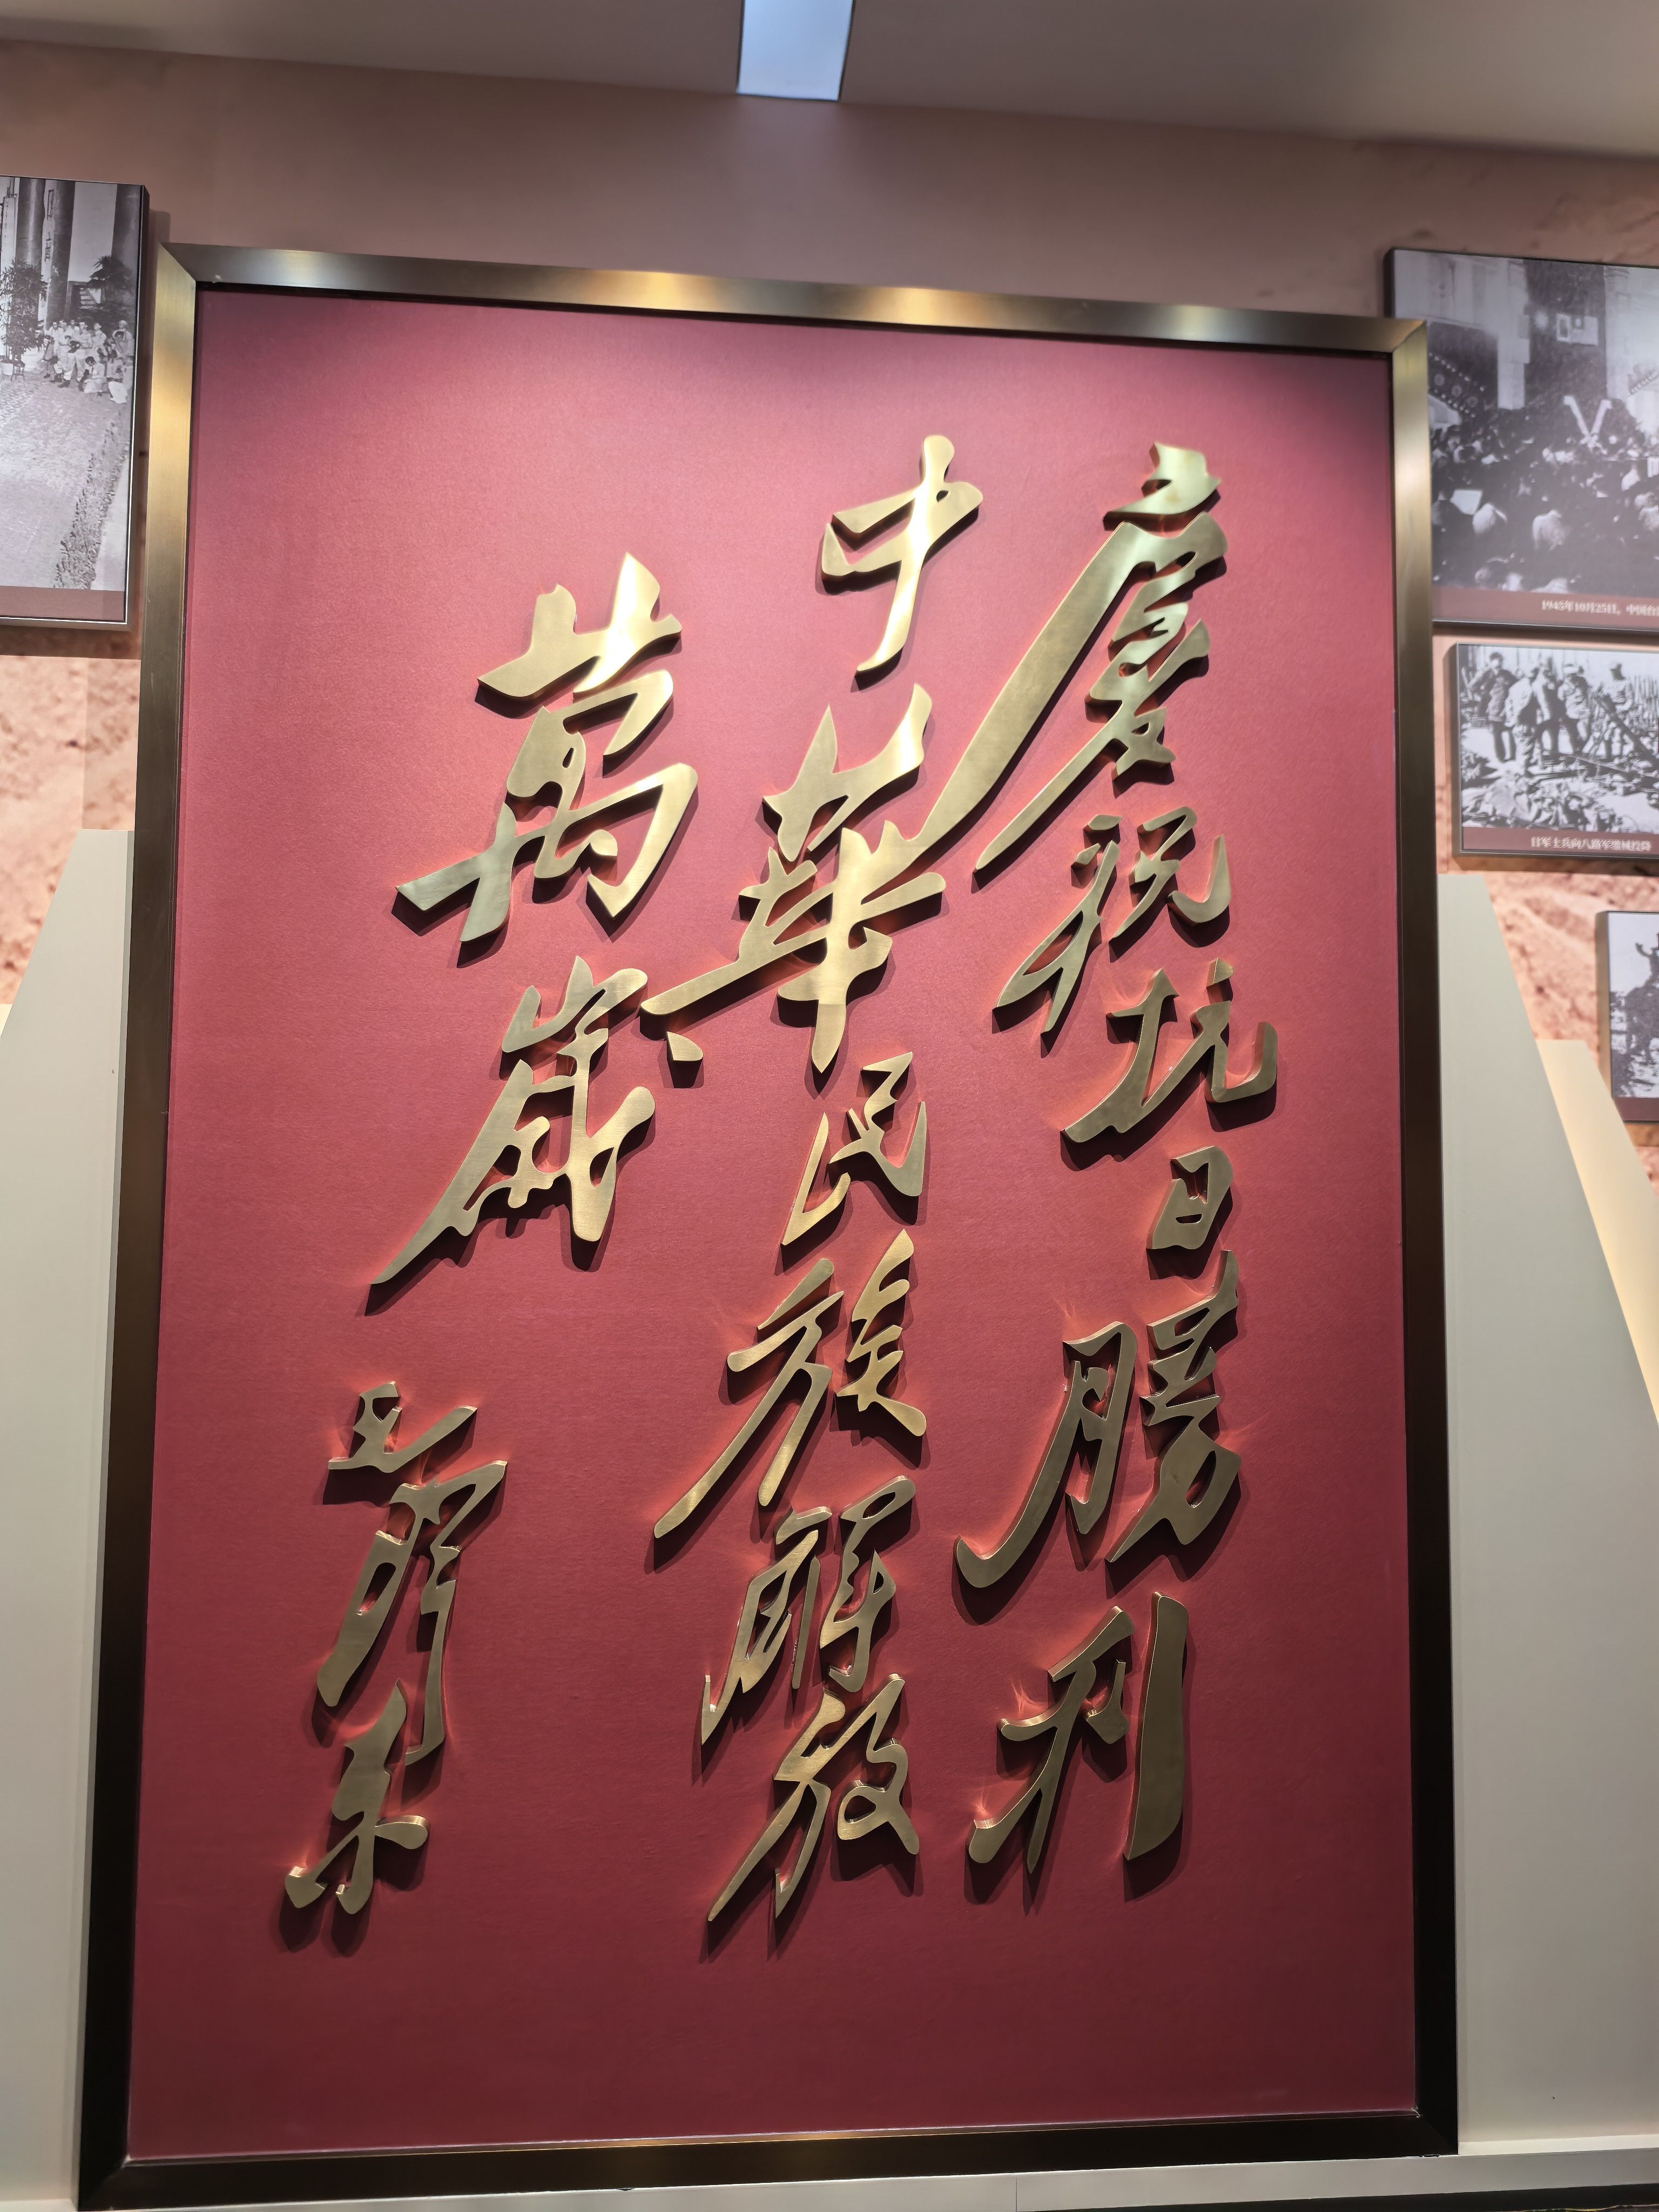 慶祝抗日勝利
中華民族解放
萬歲
毛澤東
1945年10月25日，中国台
日军士兵向八路军缴械投降